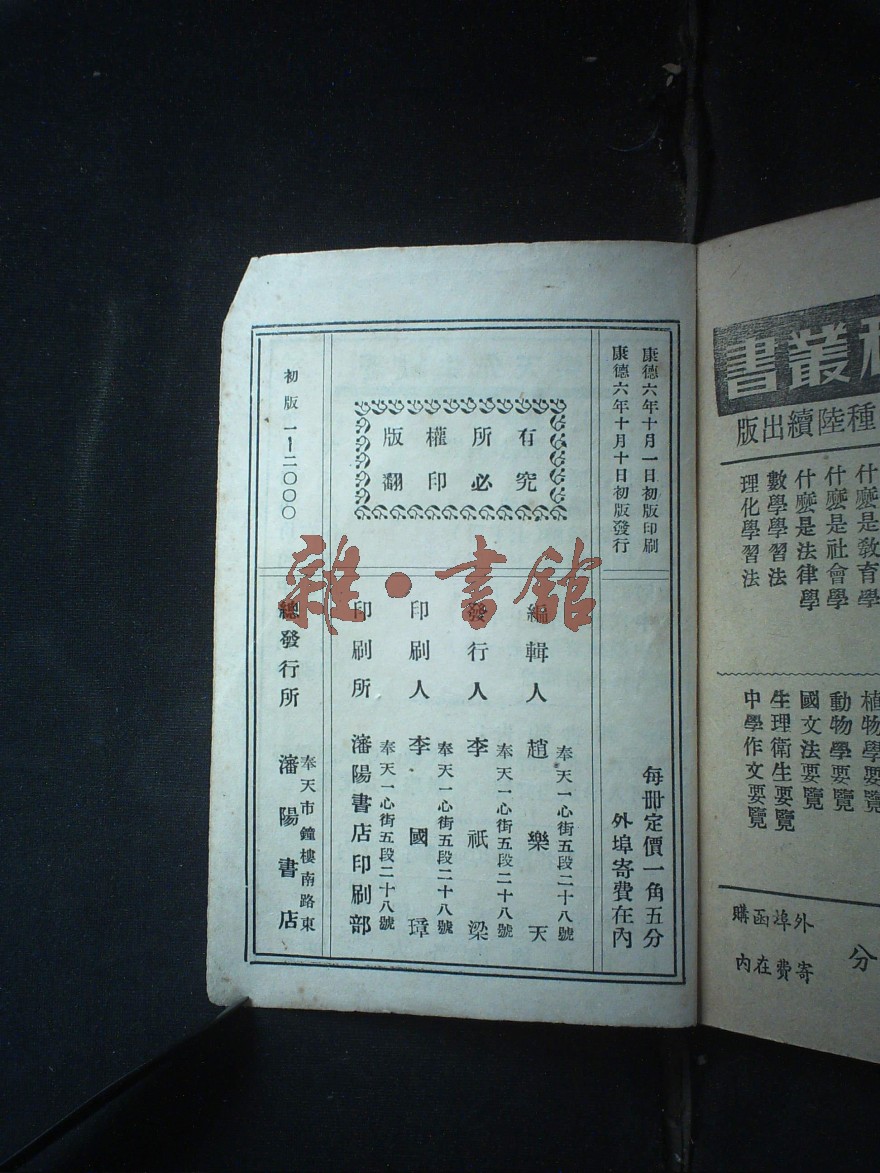 叢書
種陸續出版
什麼是教育學
什麼是社會學
什麼是法律學
數學學習法
理化學習法
植物學要覽
動物學要覽
國文法要覽
生理衛生要覽
中學作文要覽
分
外埠函購
寄費在內
康德六年十月一日初版印刷
康德六年十月十日初版發行
每冊定價一角五分
外埠寄費在內
有究
所必
權印
版翻
初版一-二〇〇〇
編輯人 趙樂天
奉天一心街五段二十八號
發行人 李祇梁
奉天一心街五段二十八號
印刷人 李國璋
奉天一心街五段二十八號
印刷所 瀋陽書店印刷部
奉天一心街五段二十八號
總發行所 瀋陽書店
奉天市鐘樓南路東
雜·書館